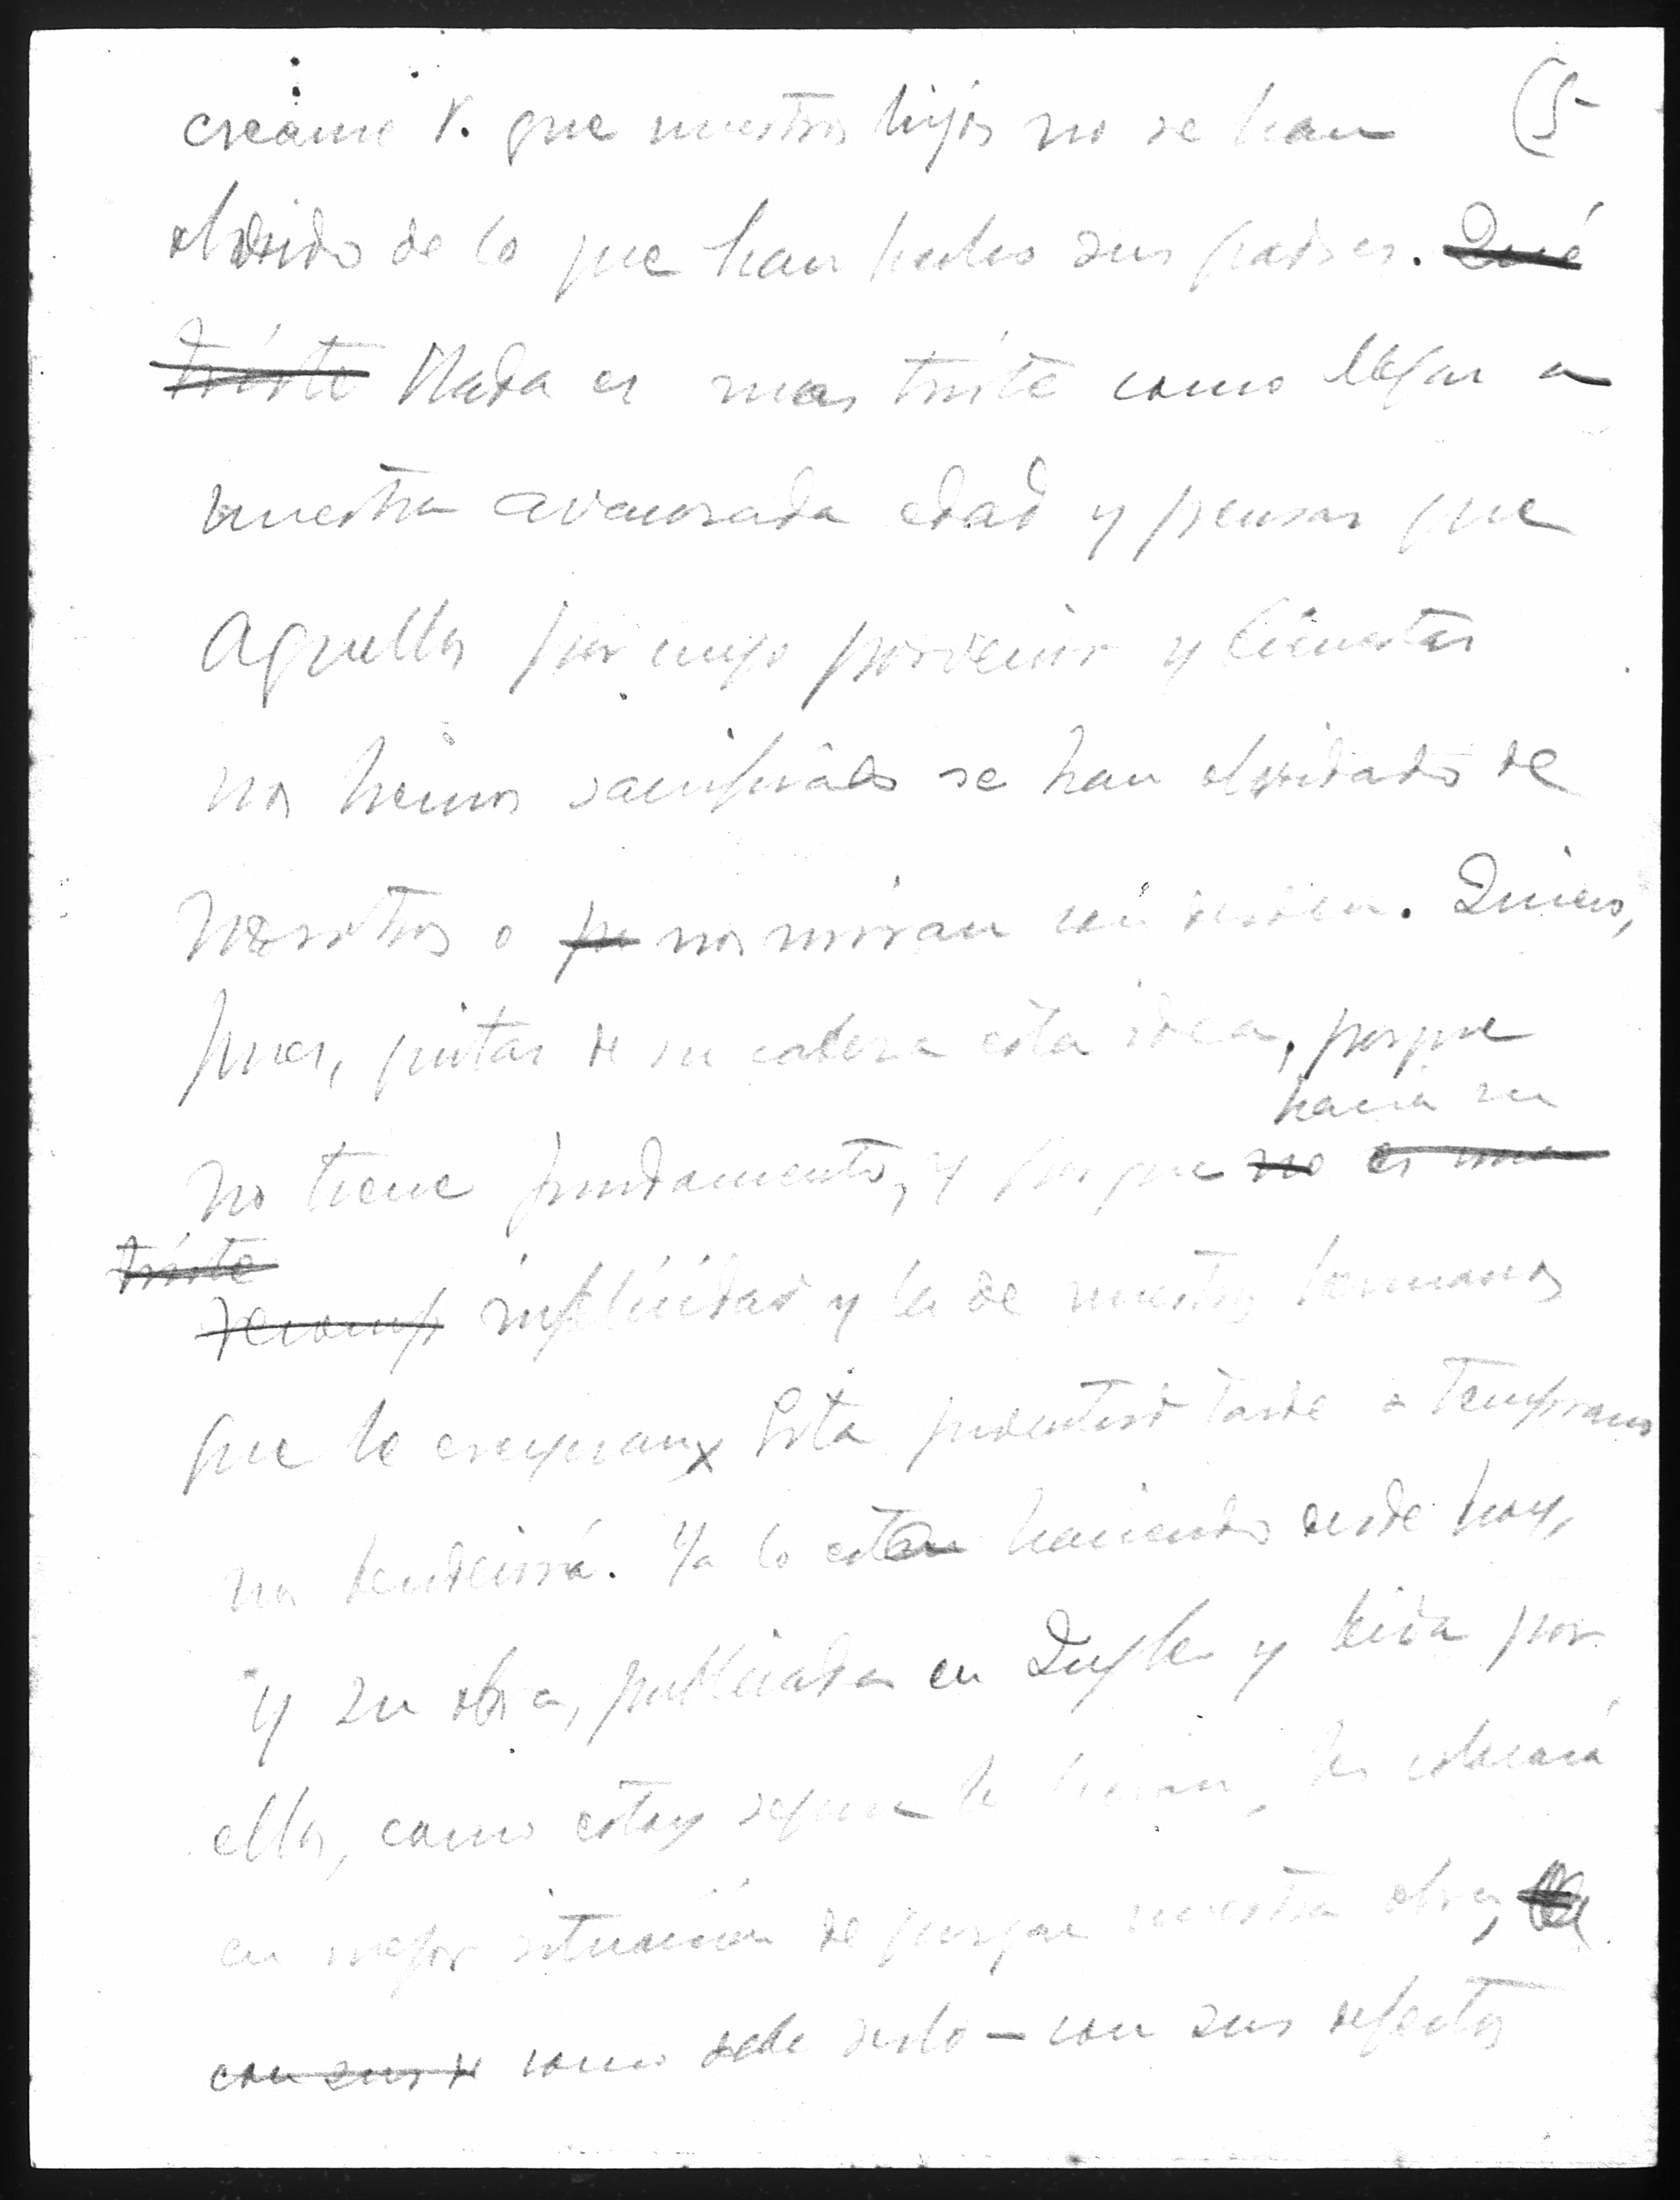 créame V. que nuestros hijos no se han (5
olvidado de lo que han hecho sus padres. Qué
triste Nada es mas triste como llegar a
nuestra avanzada edad y pensar que
aquellos por cuyo porvenir y bienestar
nos hemos sacrificado se han olvidado de
nosotros o nos miran con desden. Quiero,
pues, quitar de su cabeza esta idea, porque
haria su
no tiene fundamento, y porque no es una
triste
recomp infelicidad y la de nuestros hermanos
que le creyeran x Esta juventud tarde o temprano
nos bendecirá. Ya lo estan haciendo desde hoy,
y su obra, publicada en Ingles y leida por
ellos, como estoy segura lo harán, les colocará
en mejor situación de juzgar nuestra obra,
con sus d como debe serlo — con sus defectos